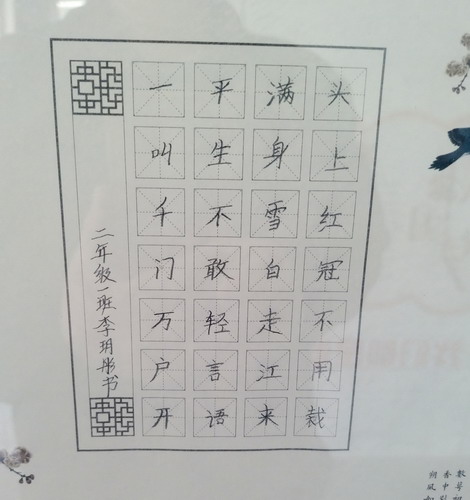 头上红冠不用裁
满身雪白走江来
平生不敢轻言语
一叫千门万户开
二年级一班李玥彤书
数
香中别
朔风如